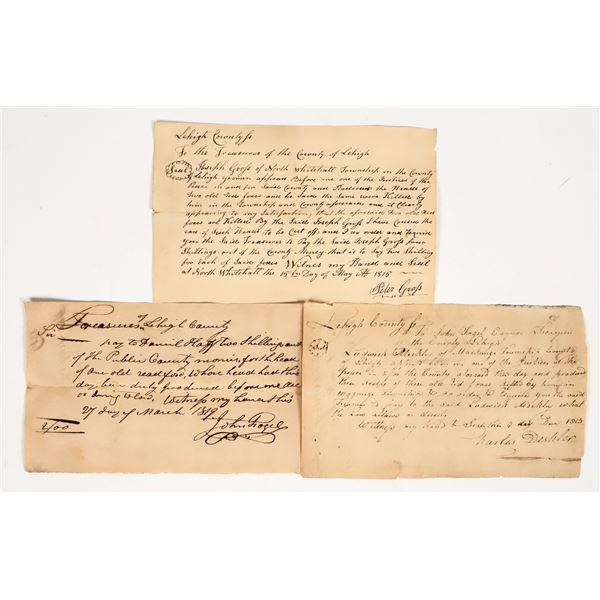 Lehigh County ss
To the Treasurer of the County of Lehigh
Seal
Joseph Groſs of North Whitehall Township in the County
of Lehigh yeoman appears Before me one of the Justices of the
Peace in and for Said County and Produced the Heads of
two old red foxes and he Saith the Same were Killed by
him in the Township and County aforesaid and it Clearly
appearing to my Satisfaction, that the aforesaid two old Red
foxes was Killed By the Said Joseph Groſs I have Caused the
ears of Such Heads to be Cut off, and I do order and Require
you the Said Treasurer to Pay the Said Joseph Groſs four
Shillings out of the County Money that is to Say two Shilling
for Each of Said foxes Witneſs my Hand and Seal
at North Whitehall the 15th Day of May 1815
Peter Groſs
Treasurer of Lehigh County
pay to Daniel two Shillings out
of the Public County monies, for the head
of one old read fox, whose head hath this
day been duly produced before me
Witneſs my hand this
27 day of March 1819
2/00
John Fogel
Lehigh County ss
To John Fogel Esquire
the County Lehigh
Seal
Ludwick of Township County
of Lehigh before me one of the Justices of the
peace in & for the County aforesaid this day and produced
three Scalps of three old Red foxes Killed by him in
Township & do order & Require you the said
to pay to the said Ludwick what
the Law allows
Witneſs my hand 1813
Charles Deshler